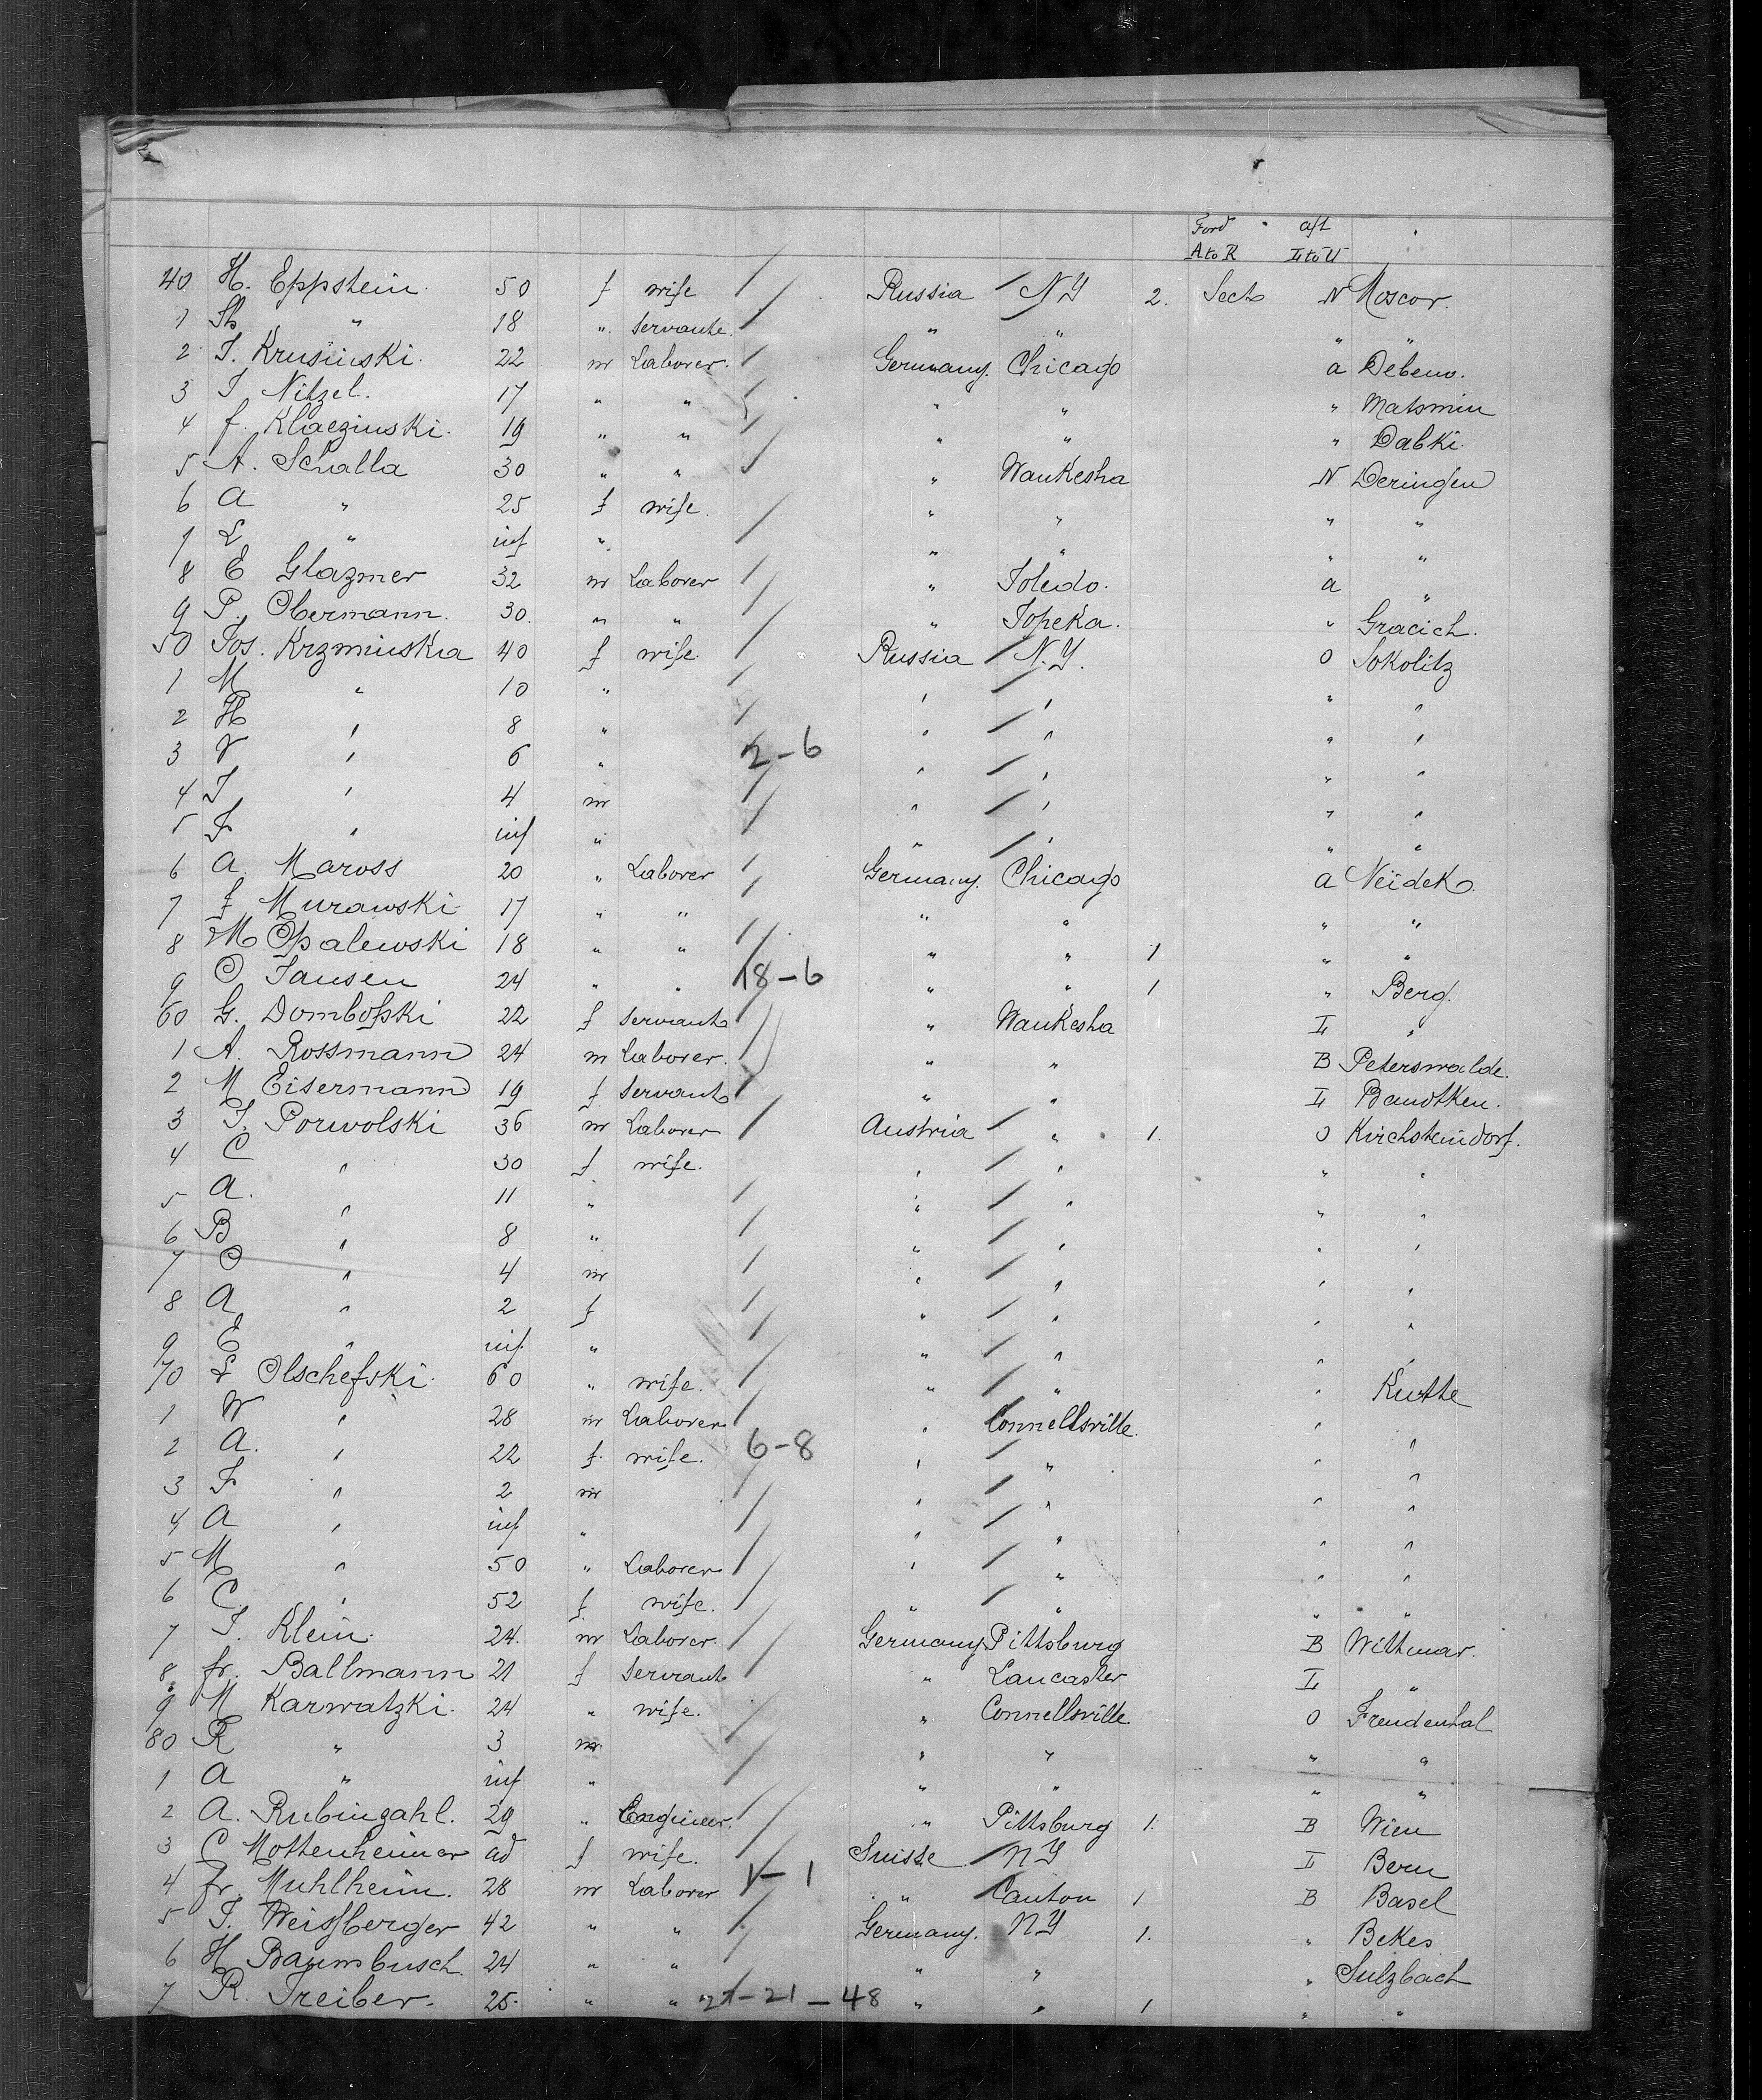 Ford " aft
A to K L to U
40 H. Eppstein. 50 f wife / Russia / N Y 2. Sect N Moscov.
1 Sh " 18 " Servante. / " " " "
2 J. Krusinski. 22 m Laborer. / Germany. Chicago a Debenv.
3 J Nitzel. 17 " " / " " " Matsmin
4 f. Klaczinski. 19 " " / " " " Dabki
5 A. Schalla 30 " " / " Waukesha N Deringen
6 A " 25 f wife. " " " "
7 L " inf " / " " " "
8 E Glazmer 32 m Laborer / " Toledo. a "
9 P. Obermann. 30. " " / " Topeka. " Gracich.
50 Jos. Krzminskia 40 f wife. / Russia / N.Y. O Sokolitz
1 M " 10 " / " / " " "
2 H " 8 " / " / " " "
3 V " 6 " 2-6 " / " " "
4 J " 4 m / " / " " "
5 F " inf " / " / " " "
6 A. Maross 20 " Laborer / Germany. Chicago a Neidek
7 f Murawski 17 " " / " " " "
8 M Opalewski 18 " " / " " 1 " "
9 O Jansen 24 " " 18-6 " " 1 " Berg.
60 G. Dombosski 22 f Servant / " Waukesha L "
1 A. Rossmann 24 m Laborer. / " " B Peterswalde.
2 M Eisermann 19 f Servant / " " L Bandtken.
3 J. Porwolski 36 m Laborer / Austria / " 1. O Kirchsteindorf.
4 C " 30 f wife. " / " " "
5 A. " 11 " / " / " " "
6 B " 8 " / " / " " "
7 O " 4 m / " / " " "
8 A " 2 f / " / " " "
9 E " inf. " / " / " " "
70 L Olschefski. 60 " wife. / " / " " Kutte
1 W " 28 m Laborer / " Connellsville. " "
2 A. " 22 f. wife. 6-8 " / " " "
3 F " 2 m / " / " " "
4 A " inf " / " / " " "
5 M " 50 " Laborer / " / " " "
6 C. " 52 f wife. / " / " " "
7 J. Klein. 24. m Laborer. / Germany Pittsburg B Wittmar.
8 fr. Ballmann 21 f Servant / " Lancaster L "
9 M Karwatzki. 24 " wife. / " Connellsville. O Freudenthal
80 R " 3 m / " " " "
1 A " inf " / " " " "
2 A. Rubinzahl. 29 " Engineer. / " Pittsburg 1. B Wien
3 C Mottenheimer ad f wife. / Suisse / N Y L Bern
4 fr. Muhlheim. 28 m Laborer 1-1 " Canton 1 B Basel
5 J. Weissberger 42 " " / Germany. N Y 1. " Bekes
6 H Baumbusch. 24 " " / " " " Sulzbach
7 R. Treiber. 25. " " 27-21-48 " " 1 " "